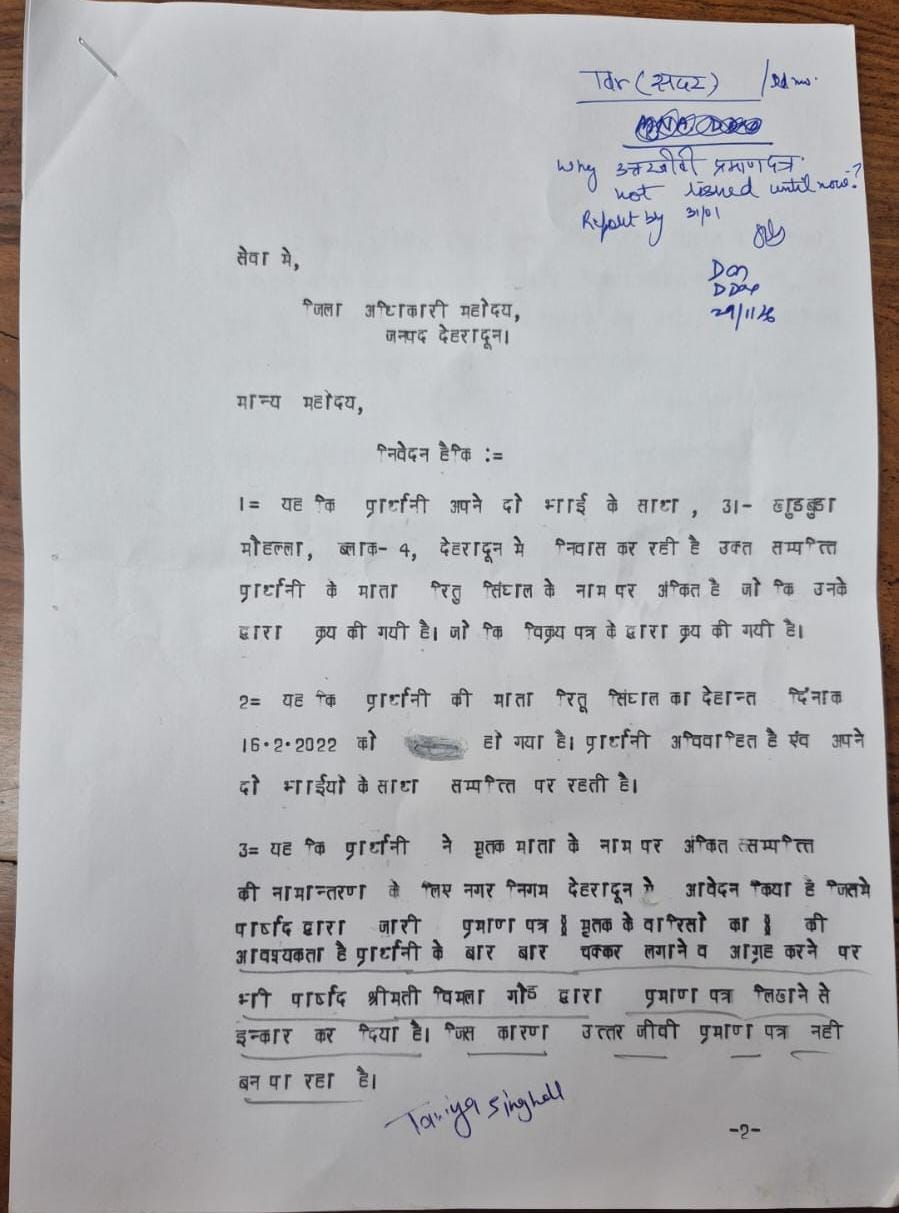 Tdr (सदर)
Why उत्तरजीवी प्रमाण पत्र
not issued until now?
Report by 31/01
DM
DDn
29/1/26
सेवा मे,
जिला अधिकारी महोदय,
जनपद देहरादून।
मान्य महोदय,
निवेदन हैकि :=
1= यह कि प्रार्थनी अपने दो भाई के साथ , 31- खुडबुडा
मौहल्ला, ब्लाक- 4, देहरादून मे निवास कर रही है उक्त सम्पत्ति
प्रार्थनी के माता रितु सिंघल के नाम पर अंकित है जो कि उनके
द्वारा क्रय की गयी है। जो कि विक्रय पत्र के द्वारा क्रय की गयी है।
2= यह कि प्रार्थनी की माता रितू सिंघल का देहान्त दिंनाक
16.2.2022 को हो गया है। प्रार्थनी अविवाहित है एंव अपने
दो भाईयो के साथ सम्पत्ति पर रहती है।
3= यह कि प्रार्थनी ने मृतक माता के नाम पर अंकित सम्पत्ति
की नामान्तरण के लिए नगर निगम देहरादून मे आवेदन किया है जिसमे
पार्षद द्वारा जारी प्रमाण पत्र § मृतक के वारिसो का § की
आवश्यकता है प्रार्थनी के बार बार चक्कर लगाने व आग्रह करने पर
भी पार्षद श्रीमती विमला गौड द्वारा प्रमाण पत्र लिखने से
इन्कार कर दिया है। जिस कारण उत्तर जीवी प्रमाण पत्र नही
बन पा रहा है।
Taniya Singhal
-2-